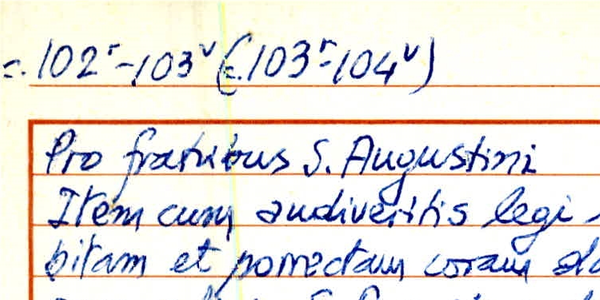 c. 102r-103v (c. 103r-104v)
Pro fratribus S. Augustini
Item cum audiveritis legi-
bitam et porrectam coram